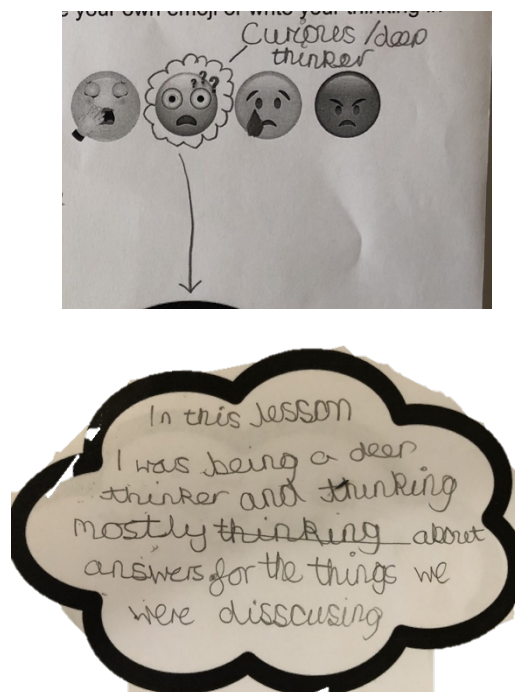 e your own emoji or write your thinking in
Curious/deep
thinker
???
In this lesson
I was being a deep
thinker and thinking
mostly thinking about
answers for the things we
were disscusing